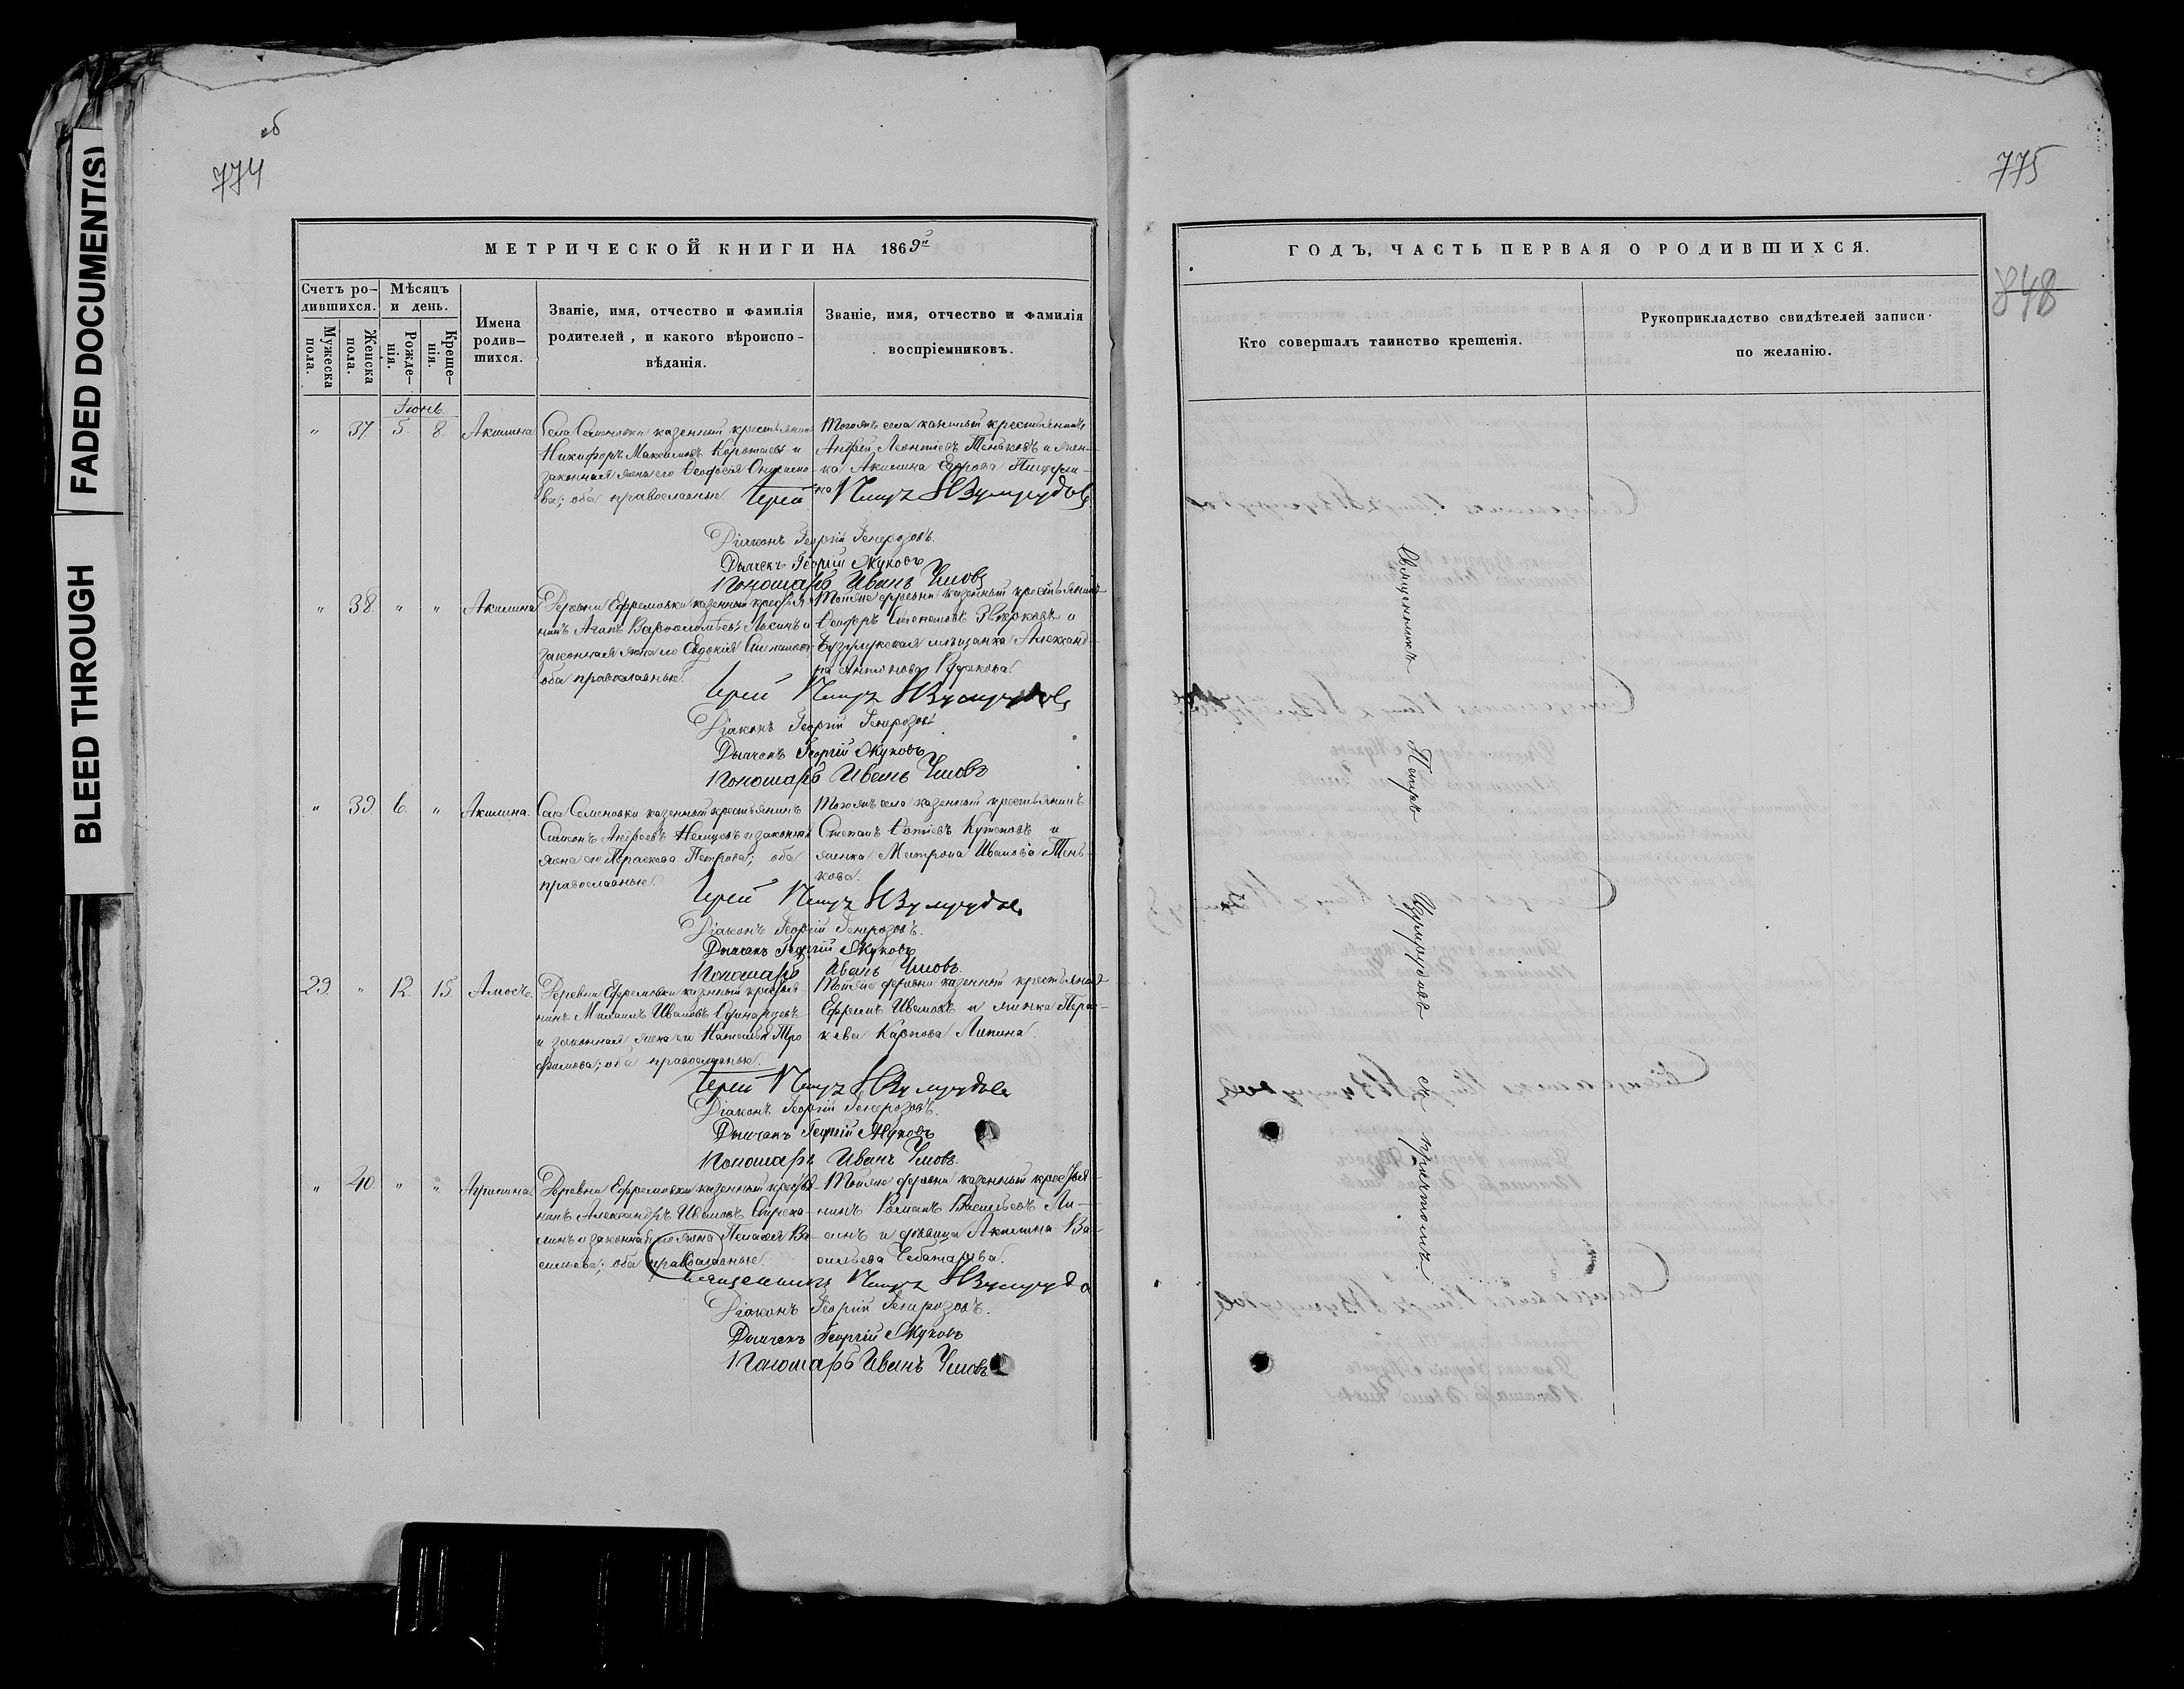 FADED DOCUMENT(S)
BLEED THROUGH
об
774
МЕТРИЧЕСКОЙ КНИГИ НА 1869й
Счетъ ро-
дившихся.
Мѣсяцъ
и день.
Мужеска
пола.
Женска
пола.
Рожде-
нія.
Креще-
нія.
Имена
родив-
шихся.
Званіе, имя, отчество и фамилія
родителей, и какого вѣроиспо-
вѣданія.
Званіе, имя, отчество и фамилія
воспріемниковъ.
Іюнь.
" 37. 5. 8. Акилина
Села Семеновки казенный крестьянинъ
Никифоръ Максимовъ и
законная жена его Ѳеодосія
ва; оба православные.
Тогожъ села казенный крестьянинъ
Андрей Леонтіевъ Теньковъ и жен-
ка Акилина
Іерей Петръ Изумрудовъ
Діаконъ Георгій Генерозовъ.
Дьячекъ Георгій Жуковъ
Пономарь Иванъ Умовъ
" 38. " " Акилина
Деревни Ефремовки казенный крестья-
нинъ Агапъ Варѳоломѣевъ и
законная жена его Евдокія Степанова
оба православные.
Тойже деревни казенный крестьянинъ
Ѳеодоръ Степановъ и
Бузулукская мѣщанка Александ-
ра Антонова
Іерей Петръ Изумрудовъ
Діаконъ Георгій Генерозовъ
Дьячекъ Георгій Жуковъ
Пономарь Иванъ Умовъ
" 39. 6. " Акилина.
Села Семеновки казенный крестьянинъ
Симеонъ Андреевъ Немцовъ и законная
жена его Параскева Петрова; оба
православные.
Тогожъ села казенный крестьянинъ
Степанъ и
женка Матрона Иванова Тень-
кова.
Іерей Петръ Изумрудовъ
Діаконъ Георгій Генерозовъ.
Дьячекъ Георгій Жуковъ
Пономарь Иванъ Умовъ.
29. " 12. 15 Амосъ.
Деревни Ефремовки казенный крестья-
нинъ Ивановъ
и законная жена его Наталья Тро-
фимова; оба православные.
Тойже деревни казенный крестьянинъ
Ефремъ Ивановъ и женка Парас-
кева Карпова Липина.
Іерей Петръ Изумрудовъ
Діаконъ Георгій Генерозовъ.
Дьячекъ Георгій Жуковъ
Пономарь Иванъ Умовъ.
" 40. " " Агрипина
Деревни Ефремовки казенный крестья-
нинъ Александръ Ивановъ
и законная его жена Пелагея Ва-
сильева; оба православные.
Тойже деревни казенный крестья-
нинъ Романъ Васильевъ
и дѣвица Акилина Ва-
сильева Чеботарева.
Священникъ Петръ Изумрудовъ
Діаконъ Георгій Генерозовъ.
Дьячекъ Георгій Жуковъ
Пономарь Иванъ Умовъ
775
848
ГОДЪ, ЧАСТЬ ПЕРВАЯ О РОДИВШИХСЯ.
Кто совершалъ таинство крещенія.
Рукоприкладство свидѣтелей записи
по желанію.
Священникъ Петръ Изумрудовъ съ причтомъ.